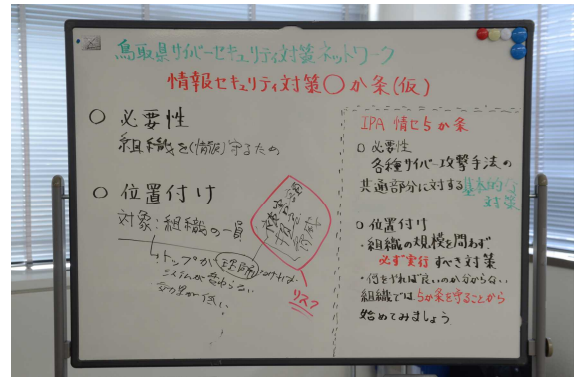 鳥取県サイバーセキュリティ対策ネットワーク
情報セキュリティ対策○か条(仮)
○ 必要性
組織を(情報)守るため
○ 位置付け
対象:組織の一員
トップが 理解 しなければ
システムが変わらない
効果が低い
リスク
IPA 情セ5か条
○ 必要性
各種サイバー攻撃手法の
共通部分に対する基本的な
対策
○ 位置付け
・組織の規模を問わず
必ず実行すべき対策
・何をやれば良いのか分からない
組織では5か条を守ることから
始めてみましょう